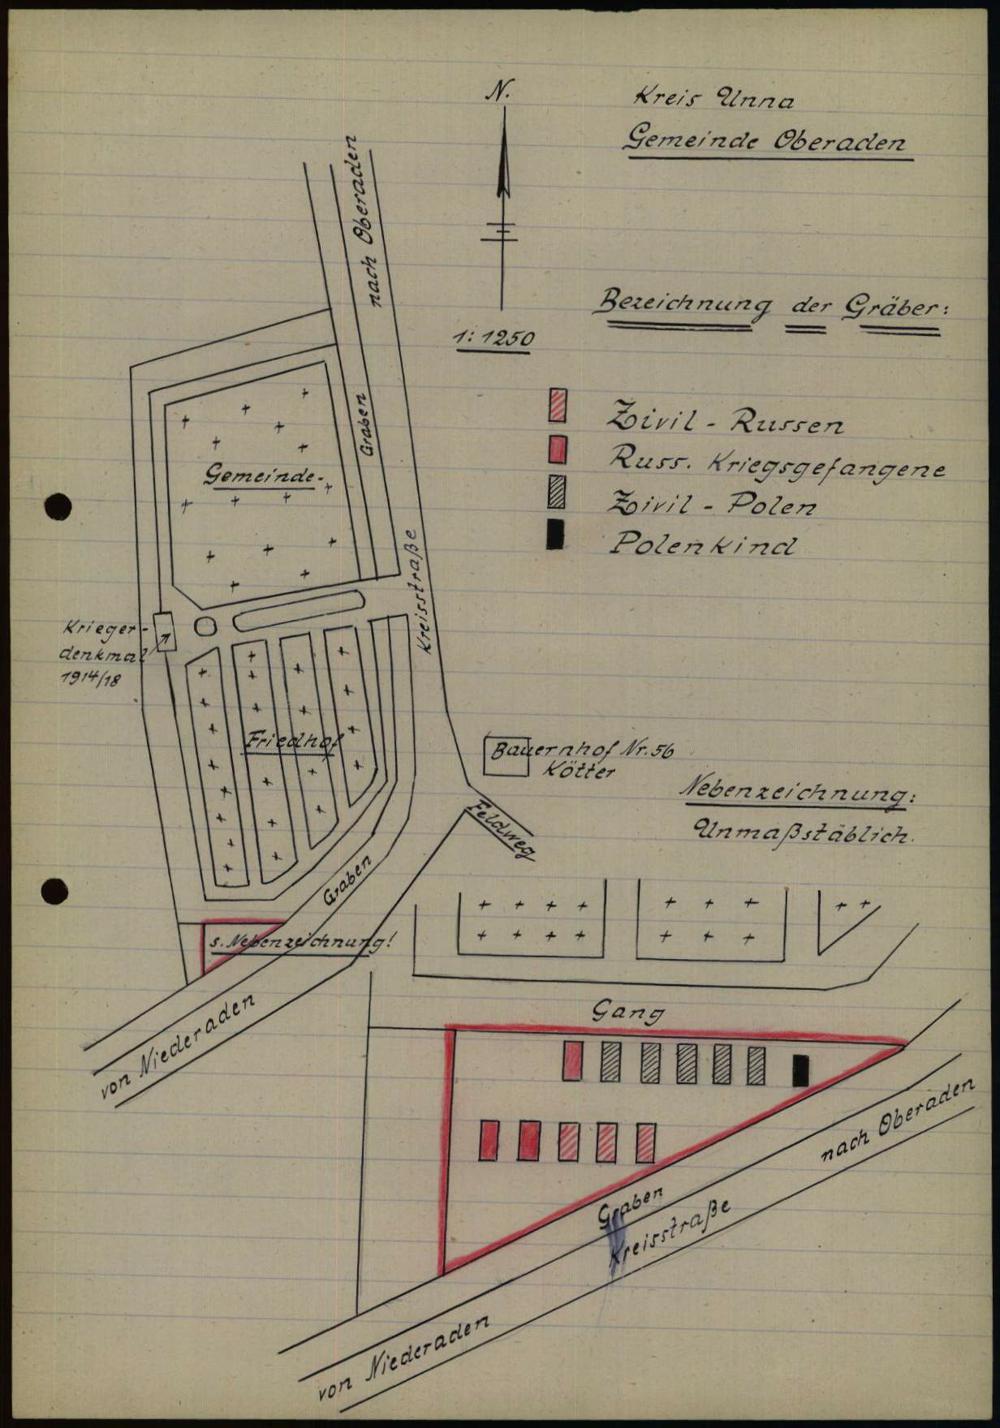 N.
Kreis Unna
Gemeinde Oberaden
nach Oberaden
1:1250
Bezeichnung der Gräber:
Zivil - Russen
Russ. Kriegsgefangene
Zivil - Polen
Polenkind
Graben
Gemeinde-
Kreisstraße
Krieger-
denkmal
1914/18
Friedhof
Bauernhof Nr. 56
Kötter
Feldweg
Nebenzeichnung:
Unmaßstäblich.
Graben
s. Nebenzeichnung!
von Niederaden
Gang
nach Oberaden
Graben
Kreisstraße
von Niederaden